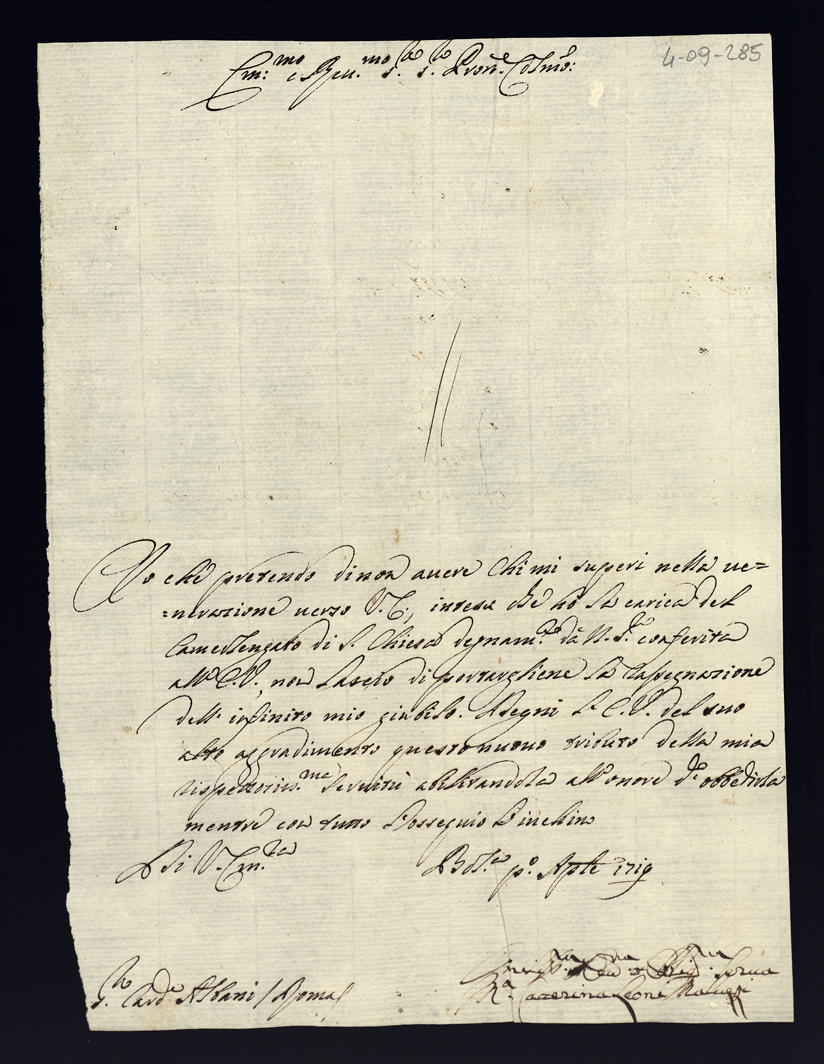 4-09-285
Em:mo e Rev.mo S.r S.r Pron.e Colmo:
Io che pretendo di non avere chi mi superi nella ve=
=nerazione verso V.E., intesa che hò la carica del
Camerlengato di S. Chiesa degnam.te dà N. S.re conferita
all' E.V., non lascio di portargliene la rassegnazione
dell' infinito mio giubilo. Si degni l' E.V. del suo
alto aggradimento questo nuovo tributo della mia
rispettosiss.ma servitù abilitandola all' onore d' obbedirla
mentre con tutto l'ossequio l'inchino
Di V. Em.za
Bol.a p.o Aple 1719
S.r Card.e Albani / Roma /
Caterina Leoni